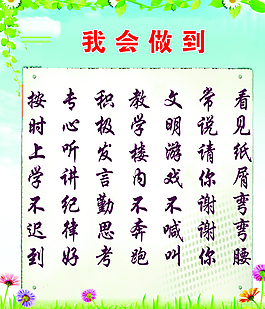 我会做到
按时上学不迟到
专心听讲纪律好
积极发言勤思考
教学楼内不奔跑
文明游戏不喊叫
常说请你谢谢你
看见纸屑弯弯腰